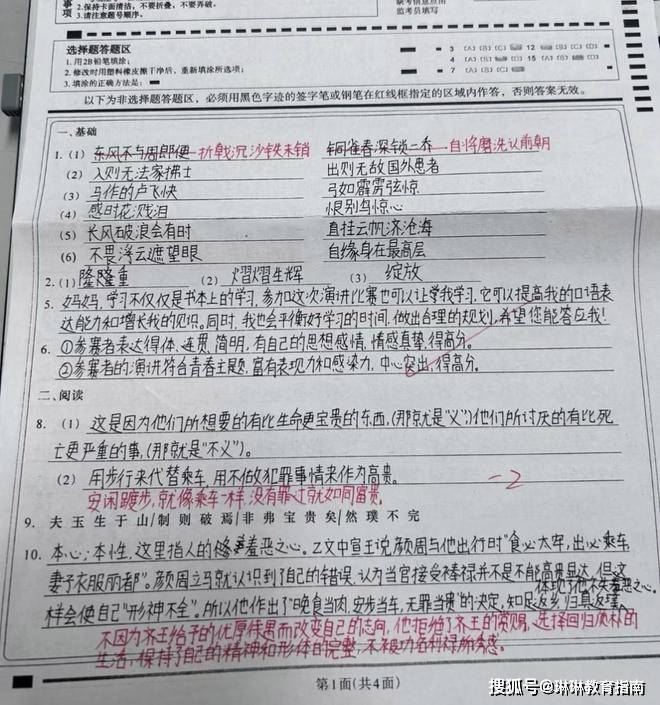 事
项
2.保持卡面清洁，不要折叠，不要弄破。
3.请注意题号顺序。
缺考信息点由
监考员填写
选择题答题区
1.用2B铅笔填涂；
2.修改时用塑料橡皮擦干净后，重新填涂所选项；
3.填涂的正确方法是：
3 [A] [B] [C] 12 [A] [B] [C] [D]
4 [A] [C] [D] 15 [A] [B] [D]
7 [A] [B] [C]
以下为非选择题答题区，必须用黑色字迹的签字笔或钢笔在红线框指定的区域内作答，否则答案无效。
一、基础
1.（1）东风不与周郎便 折戟沉沙铁未销 铜雀春深锁二乔 自将磨洗认前朝
（2）入则无法家拂士 出则无敌国外患者
（3）马作的卢飞快 弓如霹雳弦惊
（4）感时花溅泪 恨别鸟惊心
（5）长风破浪会有时 直挂云帆济沧海
（6）不畏浮云遮望眼 自缘身在最高层
2.（1）隆隆重 （2）熠熠生辉 （3）绽放
5. 妈妈，学习不仅仅是书本上的学习，参加这次演讲比赛也可以让我学习，它可以提高我的口语表
达能力和增长我的见识。同时，我也会平衡好学习的时间，做出合理的规划，希望您能答应我！
6. ①参赛者表达得体、连贯、简明，有自己的思想感情，情感真挚，得高分。
②参赛者的演讲符合青春主题，富有表现力和感染力，中心突出，得高分。
二、阅读
8.（1）这是因为他们所想要的有比生命更宝贵的东西，(那就是“义”)他们所讨厌的有比死
亡更严重的事，(那就是“不义”)。
（2）用步行来代替乘车，用不做犯罪事情来作为高贵。 -2
安闲踱步，就像乘车一样，没有罪过就如同富贵。
9. 夫玉生于山/制则破焉/非弗宝贵矣/然璞不完
10. 本心：本性，这里指人的羞恶之心。乙文中宣王说颜周与他出行时“食必太牢，出必乘车，
妻子衣服丽都”。颜周立马就认识到了自己的错误，认为当官接受俸禄并不是不能高贵显达，但这
体现了他不失羞恶之心。
样会使自己“形神不全”。所以他作出了“晚食当肉，安步当车，无罪当贵”的决定，知足返乡归真返璞
不因为齐王给予的优厚待遇而改变自己的志向，他拒绝了齐王的赏赐，选择回归质朴的
生活，保持了自己的精神和形体的完整，不被功名利禄所诱惑。
第1面(共4面)
搜狐号@琳琳教育指南